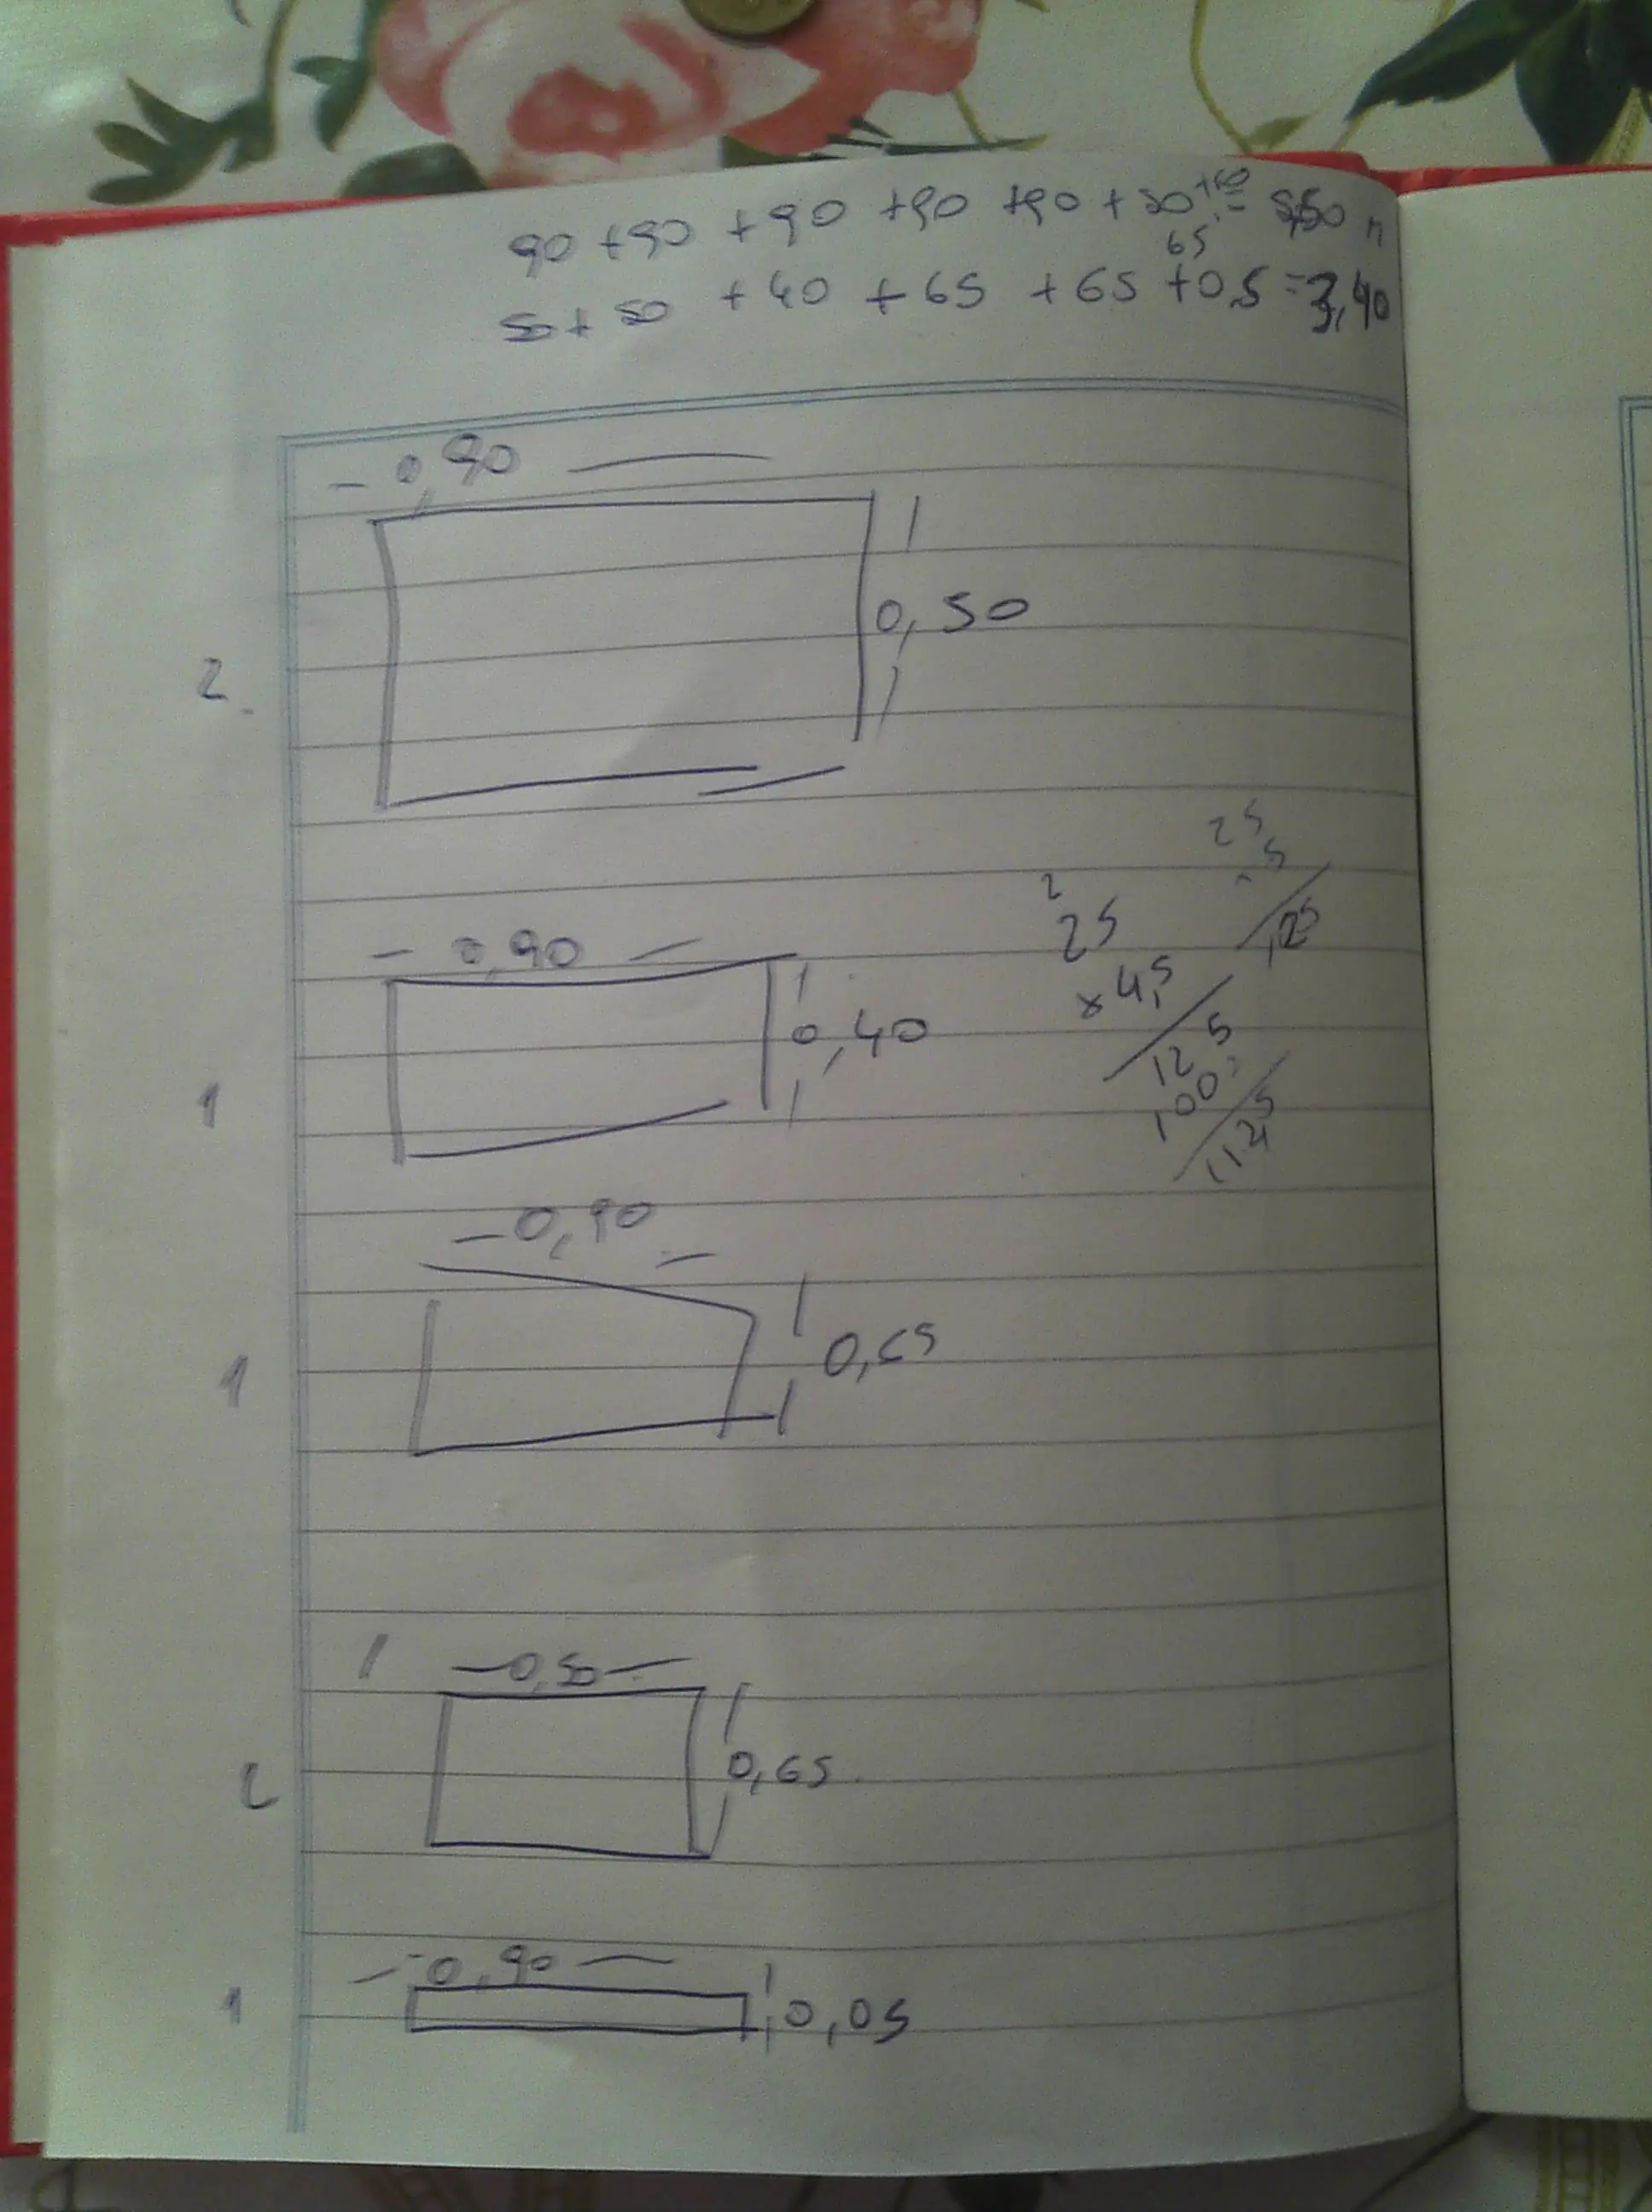 90 + 90 + 90 + 90 + 90 + 50 +50 = 5,50
65
50 + 50 + 40 + 65 + 65 + 0,5 = 3,40
- 0,90 —
0,50
2
25
5
125
2
25
x 4,5
125
100
112,5
- 0,90 -
0,40
1
- 0,90 -
0,65
1
1 - 0,50 -
0,65
2
- 0,90 -
1 0,05